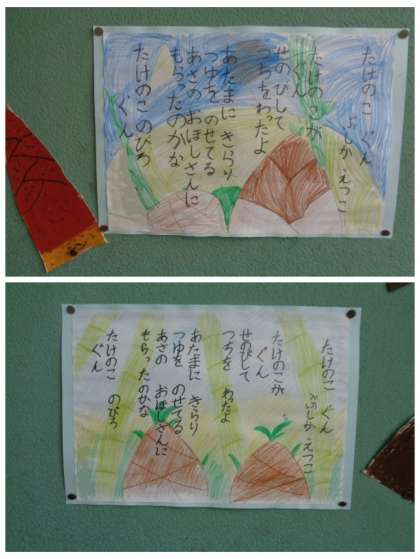 たけのこ ぐん
ぶしか えつこ
たけのこが
ぐん
せのびして
つちをわったよ
あたまに きらり
つゆを のせてる
あさの おほしさんに
もらったのかな
たけのこ のびろ
ぐん
たけのこ ぐん
ぶしか えつこ
たけのこが
ぐん
せのびして
つちを わったよ
あたまに きらり
つゆを のせてる
あさの おほしさんに
もらったのかな
たけのこ のびろ
ぐん